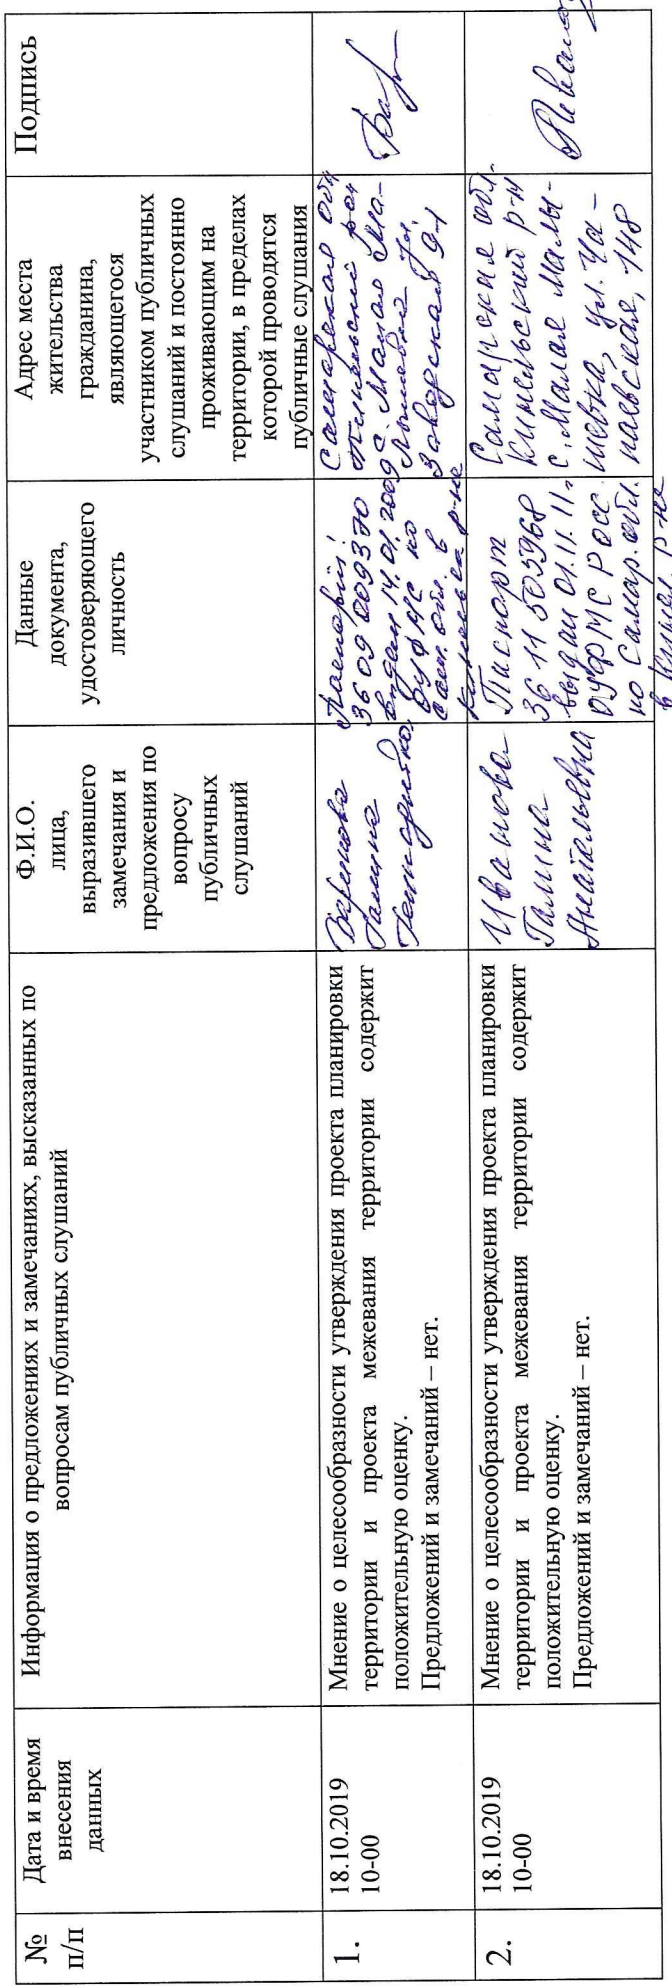 №
п/п
Дата и время
внесения
данных
Информация о предложениях и замечаниях, высказанных по
вопросам публичных слушаний
Ф.И.О.
лица,
выразившего
замечания и
предложения по
вопросу
публичных
слушаний
Данные
документа,
удостоверяющего
личность
Адрес места
жительства
гражданина,
являющегося
участником публичных
слушаний и постоянно
проживающим на
территории, в пределах
которой проводятся
публичные слушания
Подпись
1.
18.10.2019
10-00
Мнение о целесообразности утверждения проекта планировки
территории и проекта межевания территории содержит
положительную оценку.
Предложений и замечаний – нет.
Галина
Паспорт:
3609 009370
выдан 14.01.2009
ОУФМС по
Сам. обл. в
Кинельск р-не
Самарская обл
Кинельский рай
с. Малая Ма-
лышевка ул.
Заводская
2.
18.10.2019
10-00
Мнение о целесообразности утверждения проекта планировки
территории и проекта межевания территории содержит
положительную оценку.
Предложений и замечаний – нет.
Иванова
Галина
Анатольевна
Паспорт
36 11 505968
выдан 01.11.11.
ОУФМС Росс.
по Самар. обл.
в Кинел. р-не
Самарская обл.
Кинельский р-н
с. Малая Малы-
шевка, ул. Ча-
паевская, 148